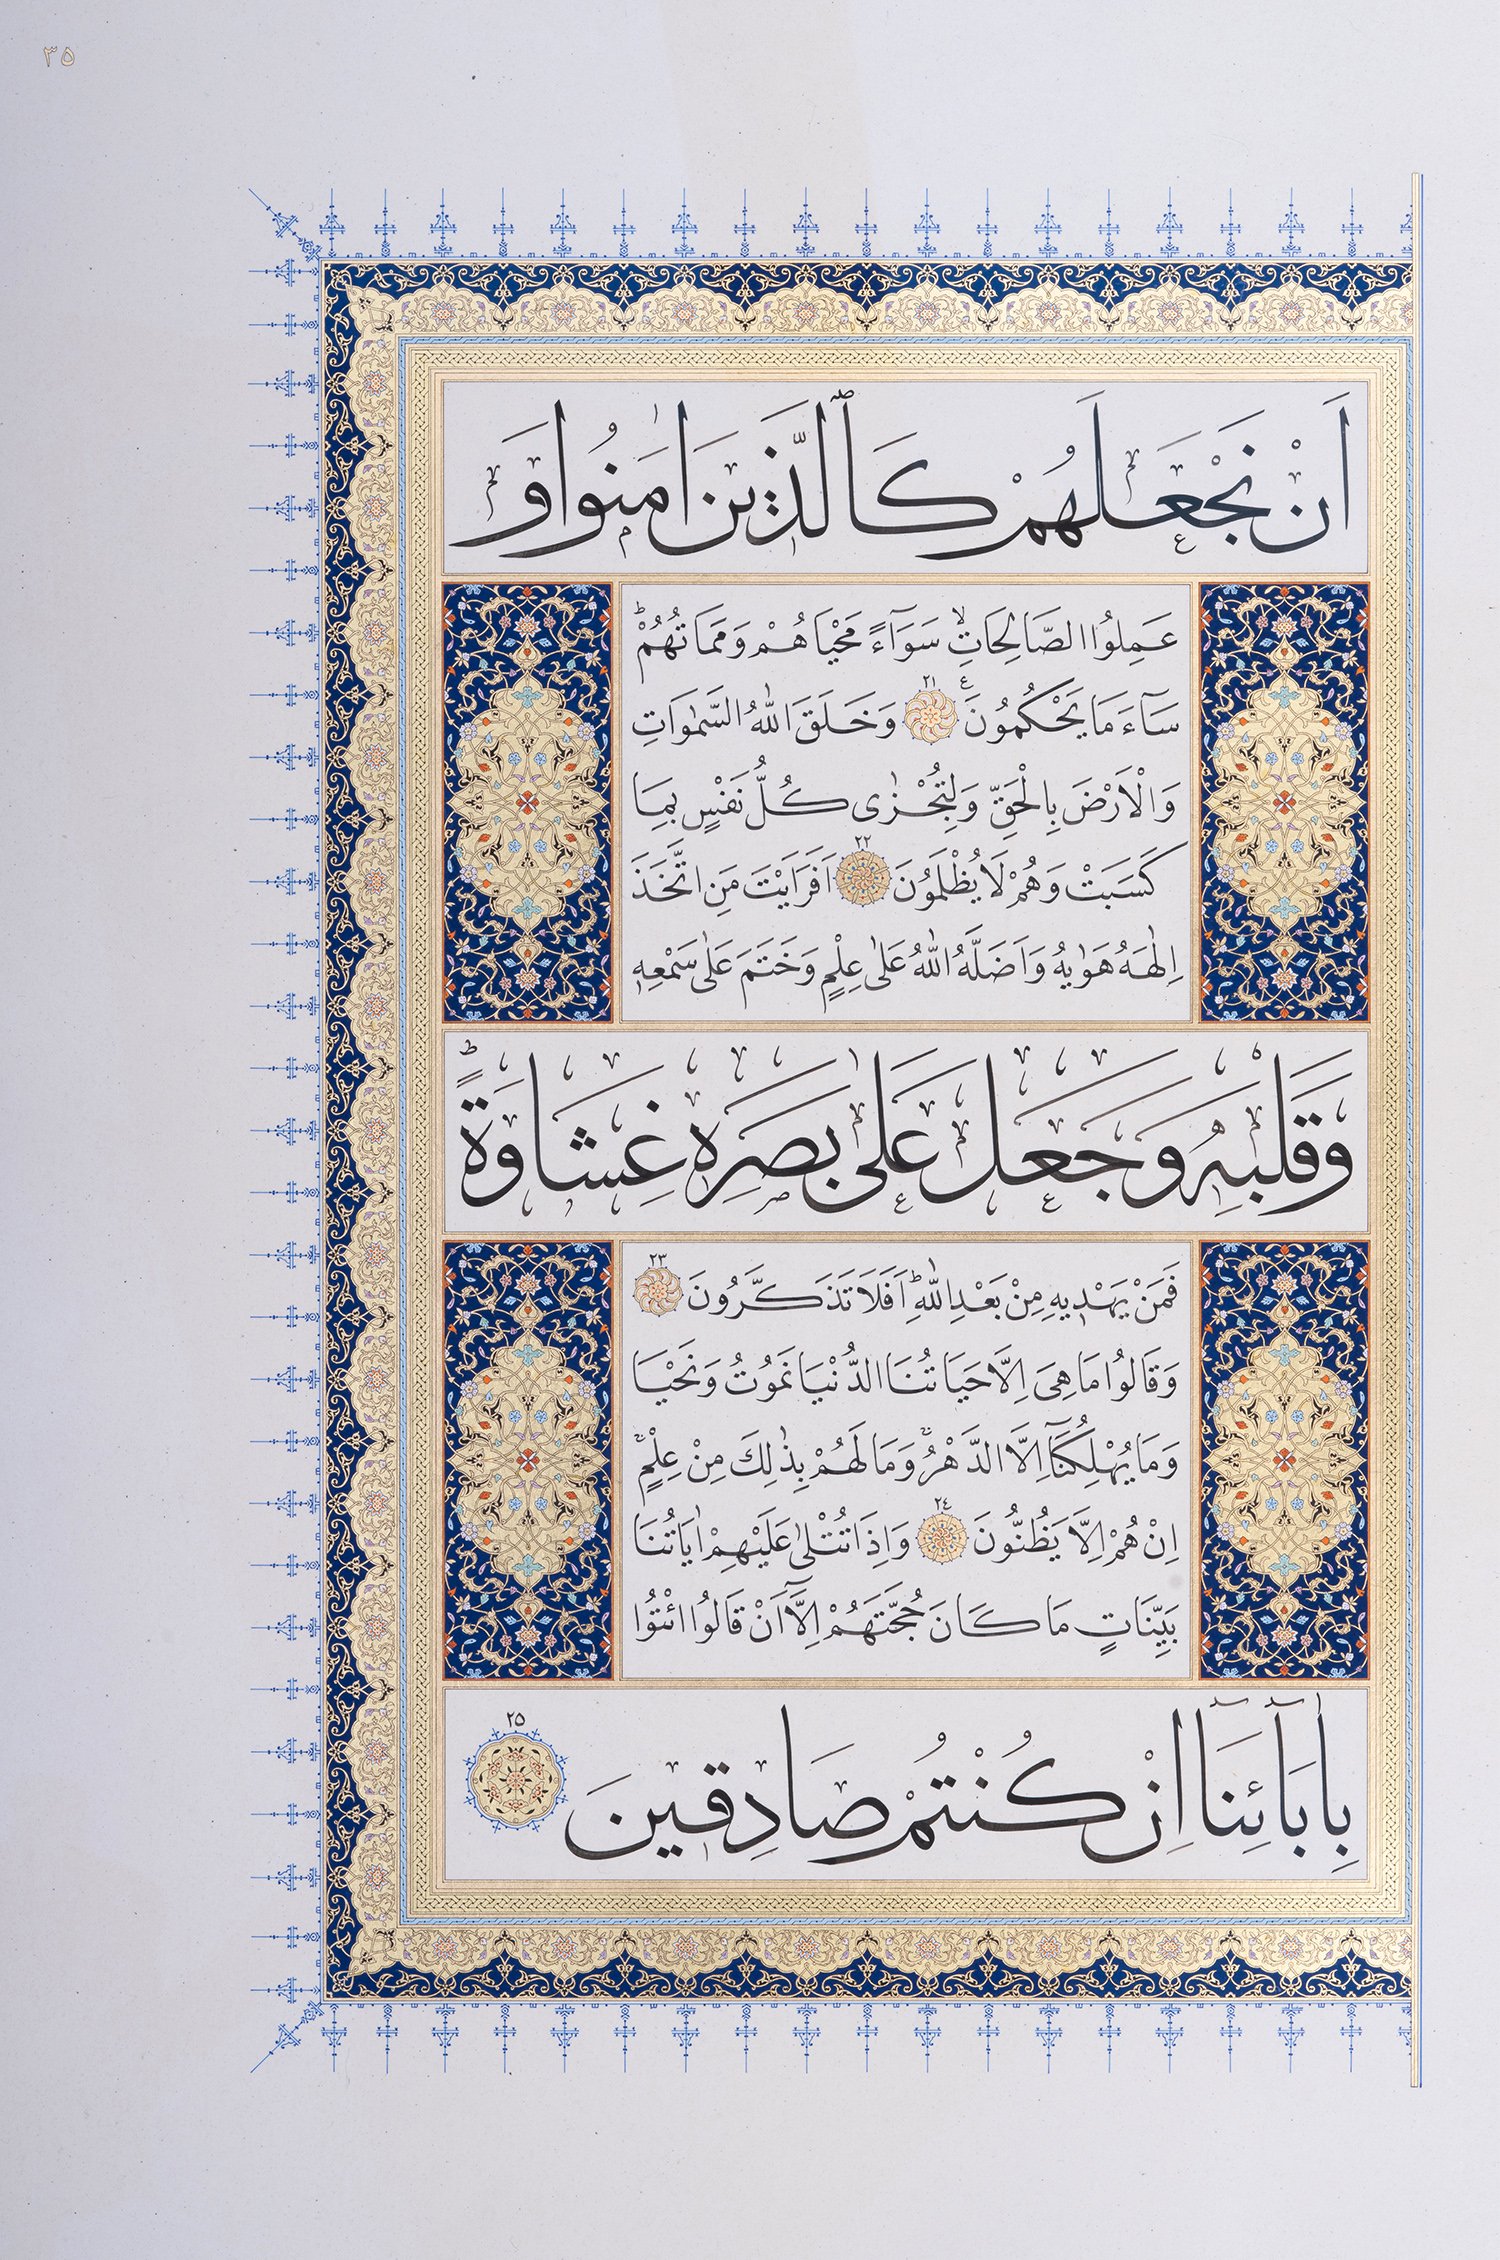 ٣٥
اَنْ نَجْعَلَهُمْ كَالَّذ۪ينَ اٰمَنُوا وَ
عَمِلُوا الصَّالِحَاتِۙ سَوَٓاءً مَحْيَاهُمْ وَمَمَاتُهُمْۜ
سَٓاءَ مَا يَحْكُمُونَ۟ ٢١ وَخَلَقَ اللّٰهُ السَّمٰوَاتِ
وَالْاَرْضَ بِالْحَقِّ وَلِتُجْزٰى كُلُّ نَفْسٍ بِمَا
كَسَبَتْ وَهُمْ لَا يُظْلَمُونَ ٢٢ اَفَرَاَيْتَ مَنِ اتَّخَذَ
اِلٰهَهُ هَوٰيهُ وَاَضَلَّهُ اللّٰهُ عَلٰى عِلْمٍ وَخَتَمَ عَلٰى سَمْعِه۪
وَقَلْبِه۪ وَجَعَلَ عَلٰى بَصَرِه۪ غِشَاوَةًۜ
فَمَنْ يَهْد۪يهِ مِنْ بَعْدِ اللّٰهِۜ اَفَلَا تَذَكَّرُونَ ٢٣
وَقَالُوا مَا هِيَ اِلَّا حَيَاتُنَا الدُّنْيَا نَمُوتُ وَنَحْيَا
وَمَا يُهْلِكُنَٓا اِلَّا الدَّهْرُۚ وَمَا لَهُمْ بِذٰلِكَ مِنْ عِلْمٍۚ
اِنْ هُمْ اِلَّا يَظُنُّونَ ٢٤ وَاِذَا تُتْلٰى عَلَيْهِمْ اٰيَاتُنَا
بَيِّنَاتٍ مَا كَانَ حُجَّتَهُمْ اِلَّٓا اَنْ قَالُوا ائْتُوا
بِاٰبَٓائِنَٓا اِنْ كُنْتُمْ صَادِق۪ينَ ٢٥